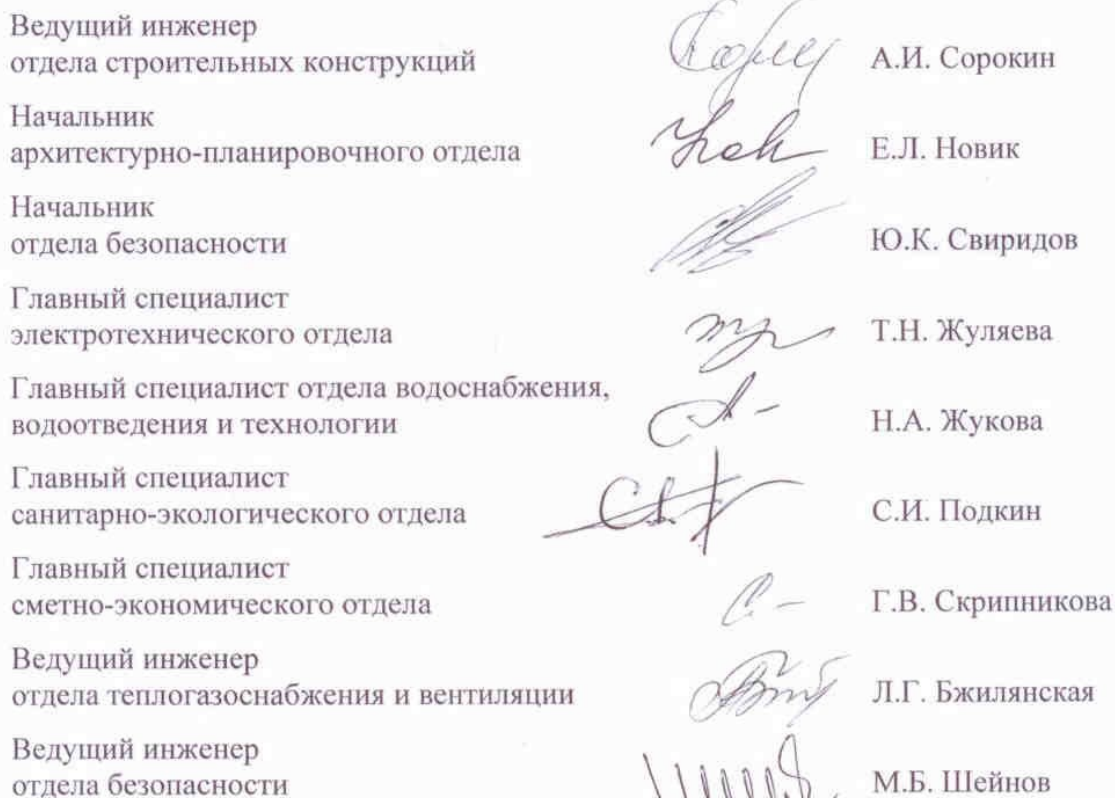 Ведущий инженер
отдела строительных конструкций А.И. Сорокин
Начальник
архитектурно-планировочного отдела Е.Л. Новик
Начальник
отдела безопасности Ю.К. Свиридов
Главный специалист
электротехнического отдела Т.Н. Жуляева
Главный специалист отдела водоснабжения,
водоотведения и технологии Н.А. Жукова
Главный специалист
санитарно-экологического отдела С.И. Подкин
Главный специалист
сметно-экономического отдела Г.В. Скрипникова
Ведущий инженер
отдела теплогазоснабжения и вентиляции Л.Г. Бжилянская
Ведущий инженер
отдела безопасности М.Б. Шейнов